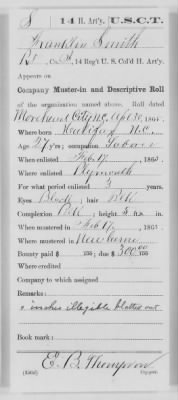 S 14 H. Art'y. U.S.C.T.
Franklin Smith
Pvt, Co. B, 14 Reg't U. S. Col'd H. Art'y.
Appears on
Company Muster-in and Descriptive Roll
of the organization named above. Roll dated
Morehead City, N.C. Apl 30, 1865.
Where born Halifax N.C.
Age 27 y'rs; occupation Laborer
When enlisted Feb. 17, 1865.
Where enlisted Plymouth
For what period enlisted 3 years.
Eyes Black; hair Blk
Complexion Blk; height 5 ft. in.
When mustered in Feb. 17, 1865
Where mustered in Newberne
Bounty paid $ 100; due $ 300.00 100
Where credited
Company to which assigned
Remarks:
inches illegible blotted out
Book mark:
E. B. Thompson
Copyist.